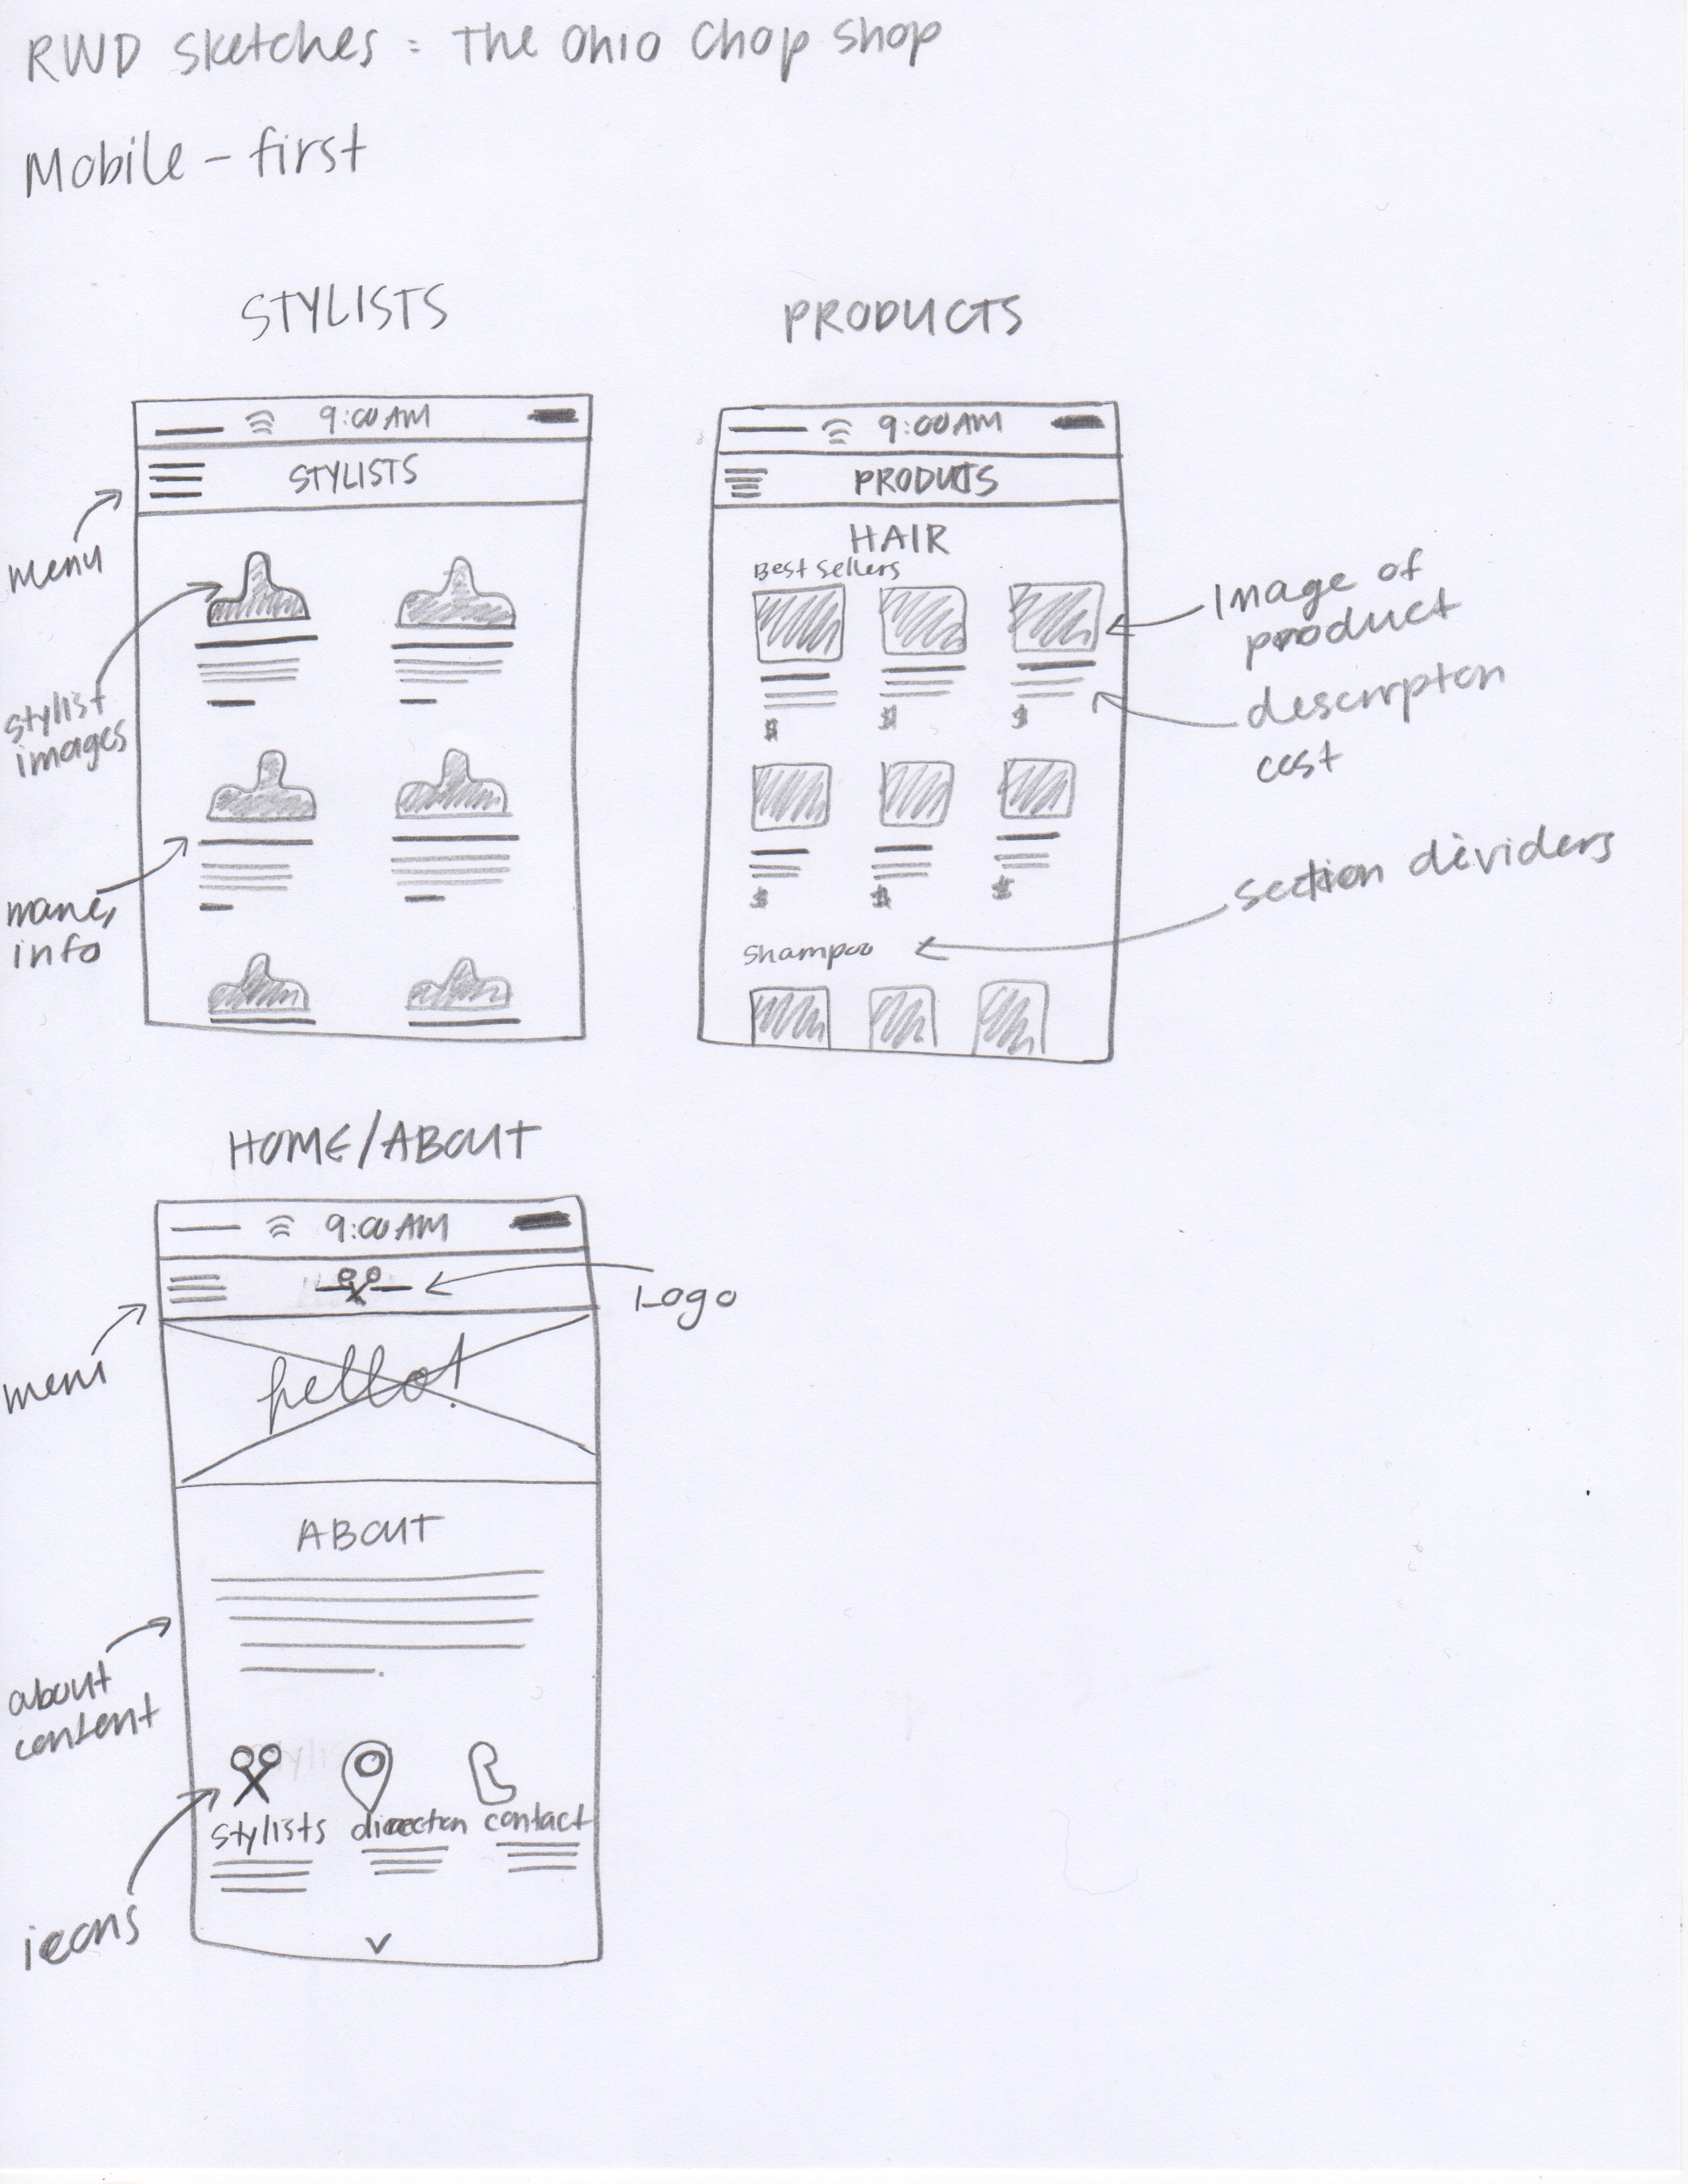 RWD Sketches : The Ohio Chop Shop
Mobile - first
STYLISTS
9:00 AM
STYLISTS
menu
stylist
images
mane,
info
PRODUCTS
9:00 AM
PRODUCTS
HAIR
Best Sellers
$ $ $
$ $ $
Shampoo
Image of
product
description
cost
section dividers
HOME/ABOUT
9:00 AM
Logo
menu
hello!
ABOUT
about
content
stylists direction contact
icons